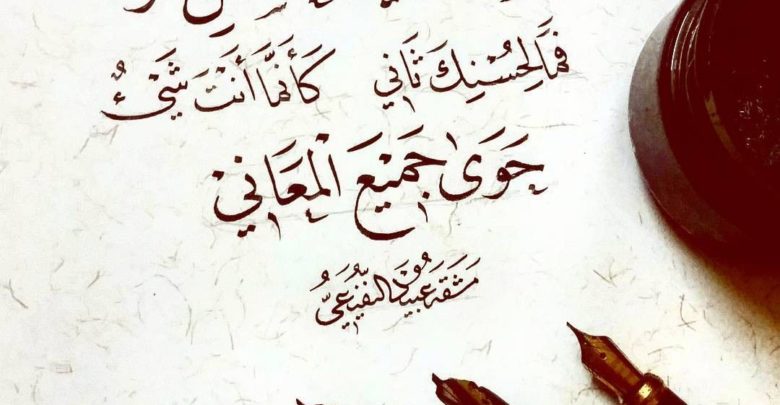 فَمَا لِحُسْنِكَ ثَانِي كَأَنَّمَا أَنْتَ شَيْءٌ
حَوَى جَمِيعَ الْمَعَانِي
مَشَقَهُ عُبَيْد النُّفَيْعِيُّ